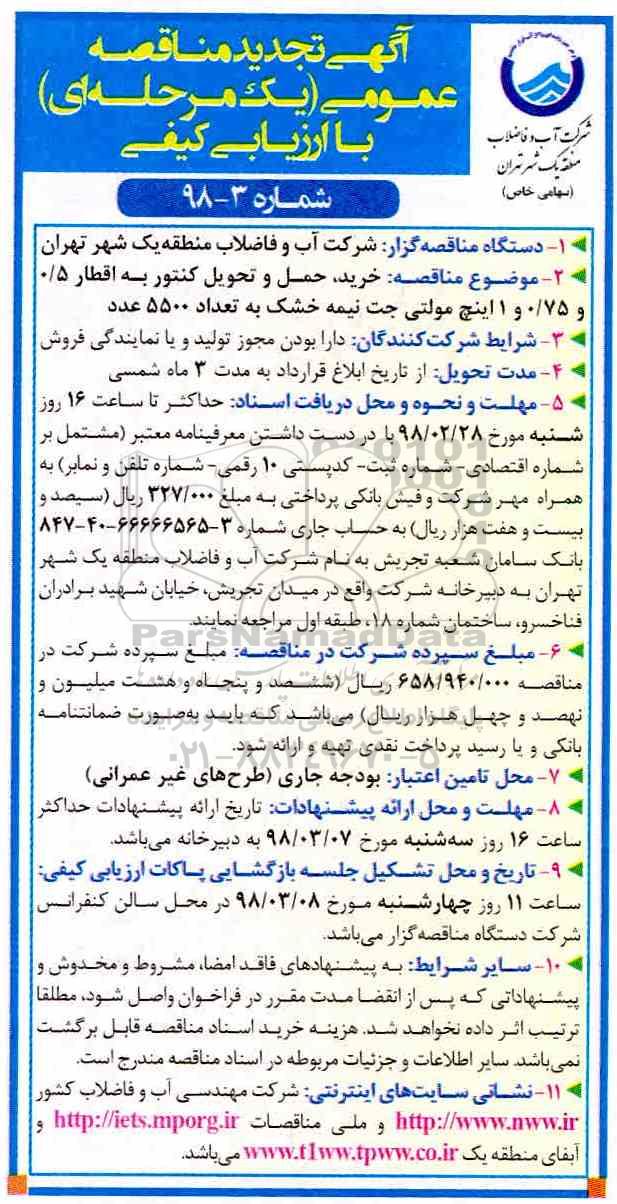 آگهی تجدید مناقصه
عمومی (یک مرحله‌ای)
با ارزیابی کیفی
شرکت آب و فاضلاب
منطقه یک شهر تهران
(سهامی خاص)
شماره ۳-۹۸
۱- دستگاه مناقصه‌گزار: شرکت آب و فاضلاب منطقه یک شهر تهران
۲- موضوع مناقصه: خرید، حمل و تحویل کنتور به اقطار ۰/۵
و ۰/۷۵ و ۱ اینچ مولتی جت نیمه خشک به تعداد ۵۵۰۰ عدد
۳- شرایط شرکت‌کنندگان: دارا بودن مجوز تولید و یا نمایندگی فروش
۴- مدت تحویل: از تاریخ ابلاغ قرارداد به مدت ۳ ماه شمسی
۵- مهلت و نحوه و محل دریافت اسناد: حداکثر تا ساعت ۱۶ روز
شنبه مورخ ۹۸/۰۲/۲۸ با در دست داشتن معرفینامه معتبر (مشتمل بر
شماره اقتصادی- شماره ثبت- کدپستی ۱۰ رقمی- شماره تلفن و نمابر) به
همراه مهر شرکت و فیش بانکی پرداختی به مبلغ ۳۲۷/۰۰۰ ریال (سیصد و
بیست و هفت هزار ریال) به حساب جاری شماره ۳-۶۶۶۶۶۵۶۵-۴۰-۸۴۷
بانک سامان شعبه تجریش به نام شرکت آب و فاضلاب منطقه یک شهر
تهران به دبیرخانه شرکت واقع در میدان تجریش، خیابان شهید برادران
فناخسرو، ساختمان شماره ۱۸، طبقه اول مراجعه نمایند.
ParsNamadData
۶- مبلغ سپرده شرکت در مناقصه: مبلغ سپرده شرکت در
مناقصه ۶۵۸/۹۴۰/۰۰۰ ریال (ششصد و پنجاه و هشت میلیون و
نهصد و چهل هزار ریال) می‌باشد که باید به‌صورت ضمانتنامه
بانکی و یا رسید پرداخت نقدی تهیه و ارائه شود.
۰۲۱-۸۸۳۴۹۶۷۰-۵
۷- محل تامین اعتبار: بودجه جاری (طرح‌های غیر عمرانی)
۸- مهلت و محل ارائه پیشنهادات: تاریخ ارائه پیشنهادات حداکثر
ساعت ۱۶ روز سه‌شنبه مورخ ۹۸/۰۳/۰۷ به دبیرخانه می‌باشد.
۹- تاریخ و محل تشکیل جلسه بازگشایی پاکات ارزیابی کیفی:
ساعت ۱۱ روز چهارشنبه مورخ ۹۸/۰۳/۰۸ در محل سالن کنفرانس
شرکت دستگاه مناقصه‌گزار می‌باشد.
۱۰- سایر شرایط: به پیشنهادهای فاقد امضا، مشروط و مخدوش و
پیشنهاداتی که پس از انقضا مدت مقرر در فراخوان واصل شود، مطلقا
ترتیب اثر داده نخواهد شد. هزینه خرید اسناد مناقصه قابل برگشت
نمی‌باشد. سایر اطلاعات و جزئیات مربوطه در اسناد مناقصه مندرج است.
۱۱- نشانی سایت‌های اینترنتی: شرکت مهندسی آب و فاضلاب کشور
http://www.nww.ir و ملی مناقصات http://iets.mporg.ir و
آبفای منطقه یک www.t1ww.tpww.co.ir می‌باشد.